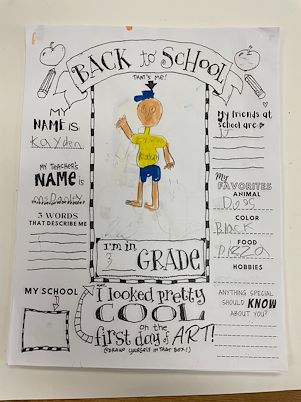 BACK to SCHOOL
THAT'S ME!
MY
NAME IS
Kayden
MY TEACHER'S
NAME is
3 WORDS
THAT DESCRIBE ME
MY SCHOOL
I'm in
3
GRADE
I looked pretty
COOL
on the
first day of ART!
(DRAW YOURSELF IN THAT BOX!)
My friends at
school are
My
FAVORITES
ANIMAL
Dogs
COLOR
Black
FOOD
pizza
HOBBIES
ANYTHING SPECIAL
SHOULD KNOW
ABOUT YOU?